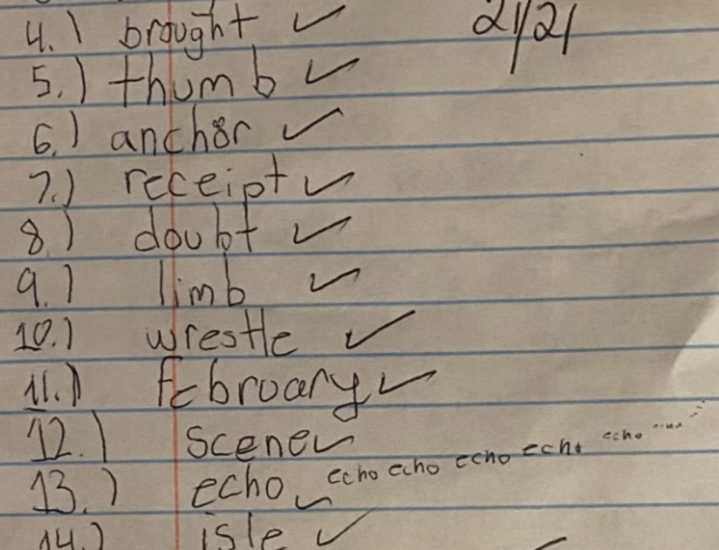 4.) brought ✓ 21/21
5.) thumb ✓
6.) anchor ✓
7.) receipt ✓
8.) doubt ✓
9.) limb ✓
10.) wrestle ✓
11.) february ✓
12.) scene ✓
13.) echo ✓ echo echo echo echo echo
14.) isle ✓